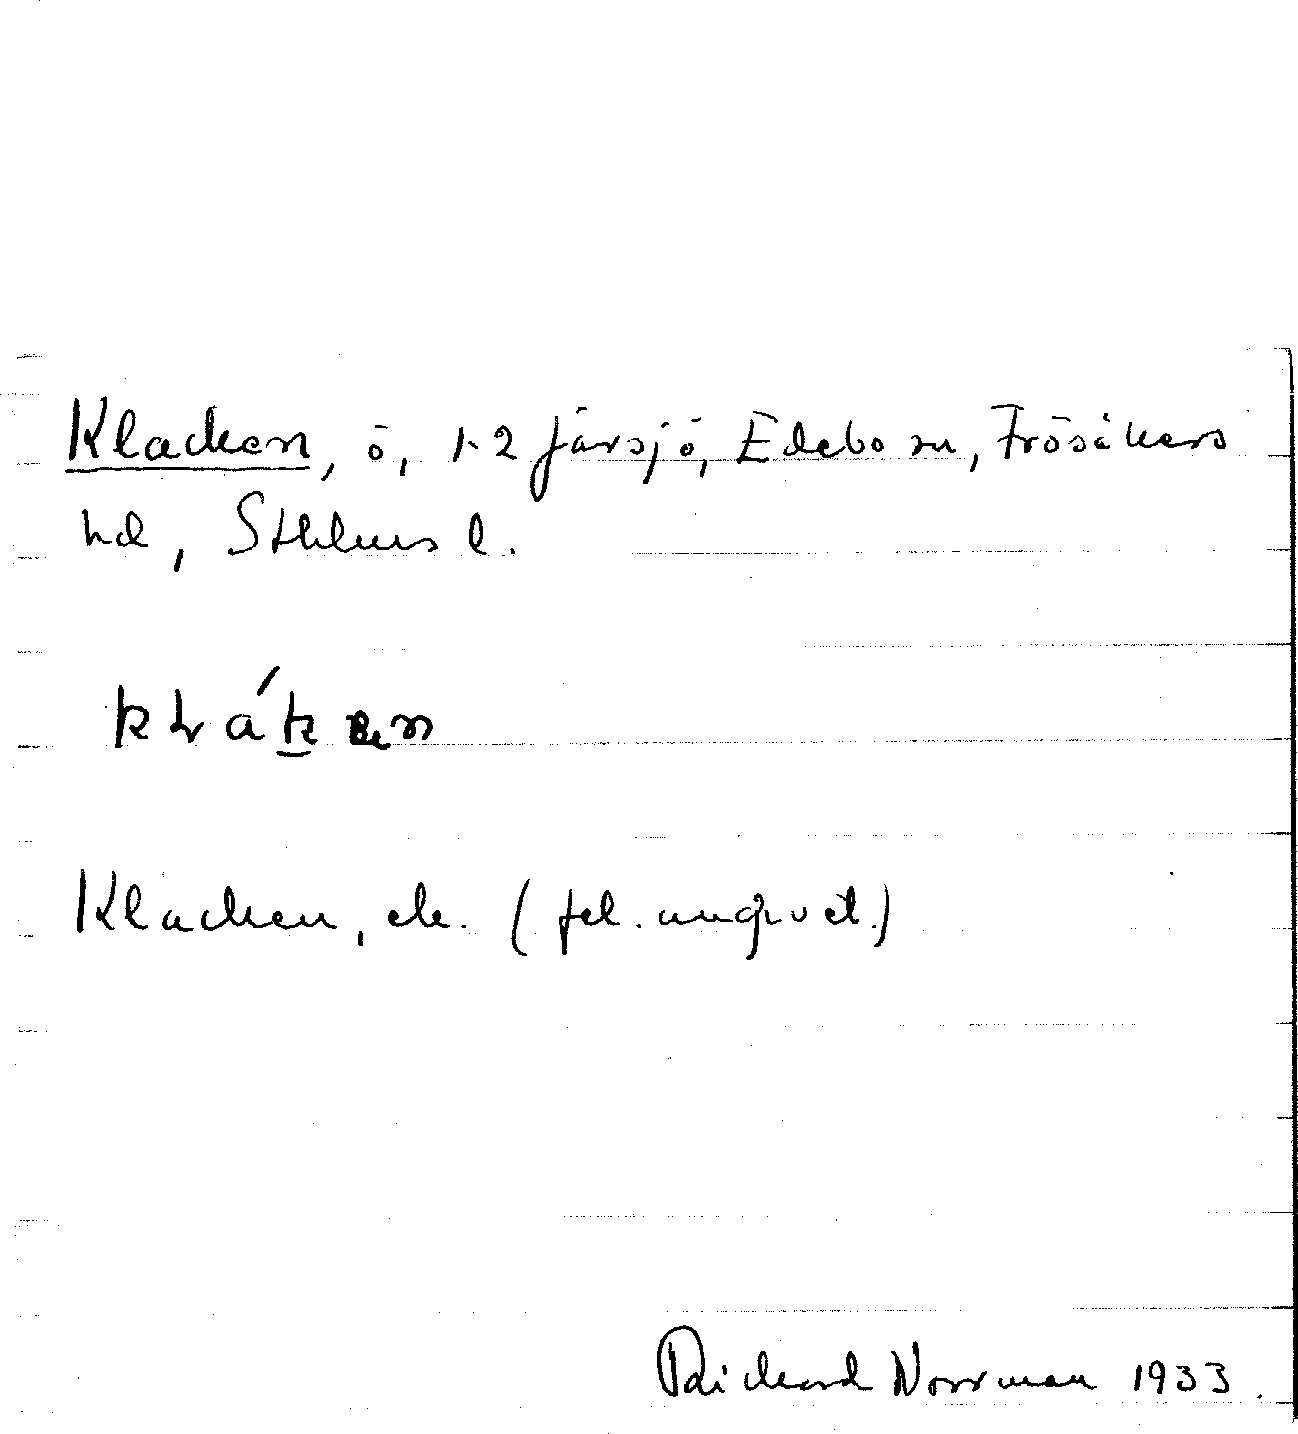 Klacken, ö, 1-2 Järsjö, Edebo sn, Frösåkers
hd, Sthlms l.
klák en
Klacken, ek. (fel. angivet.)
Richard Norrman 1933.